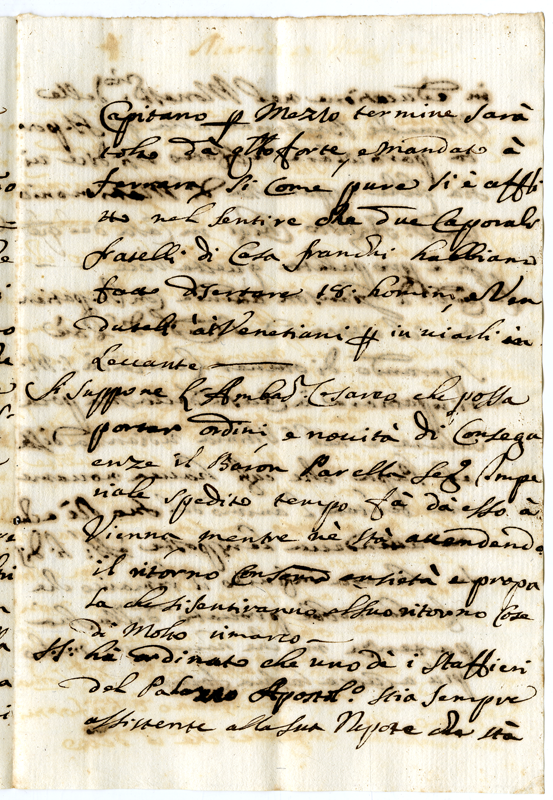 Capitano p Mezzo termine sarà
tolto dà qto forte, e mandato à
ferrara, Si come pure Si è affli
tto nel sentire che due Caporali
fratelli di Casa franchi habbiano
fatto disertare 18: homini, e Ven
duteli ài Venetiani p inviarli in
Leuante
Si suppone l'Ambasd: Cesareo che possa
portar ordini e nouità di Consegu
enze il Baron Parella Seg: Impe
riale spedito tempo fà dà esso à
Vienna mentre nè stà attendendo
il ritorno con ansietà e propa
la che si sentiranno al suo ritorno Cose
di Molto rimarco
SS: hà ordinato che uno dè i Staffieri
del Palazzo Apostl:o stia sempre
assistente alla sua Nepote che stà